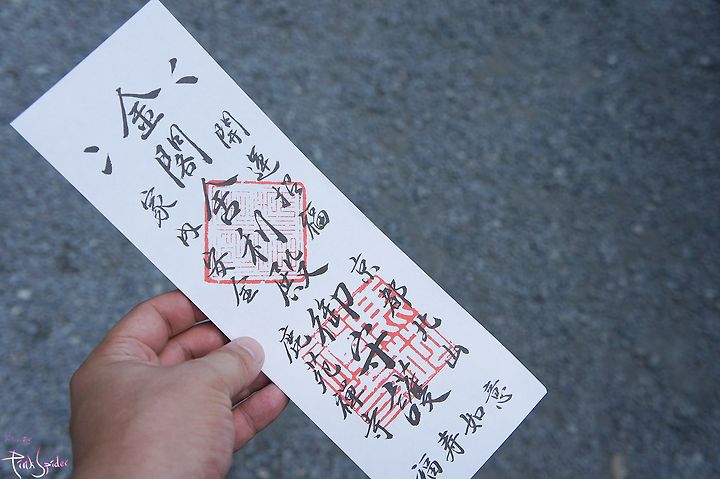 開運招福
京都北山
金閣舎利殿御守護
家内安全
鹿苑禅寺
福寿如意
Pink Spider